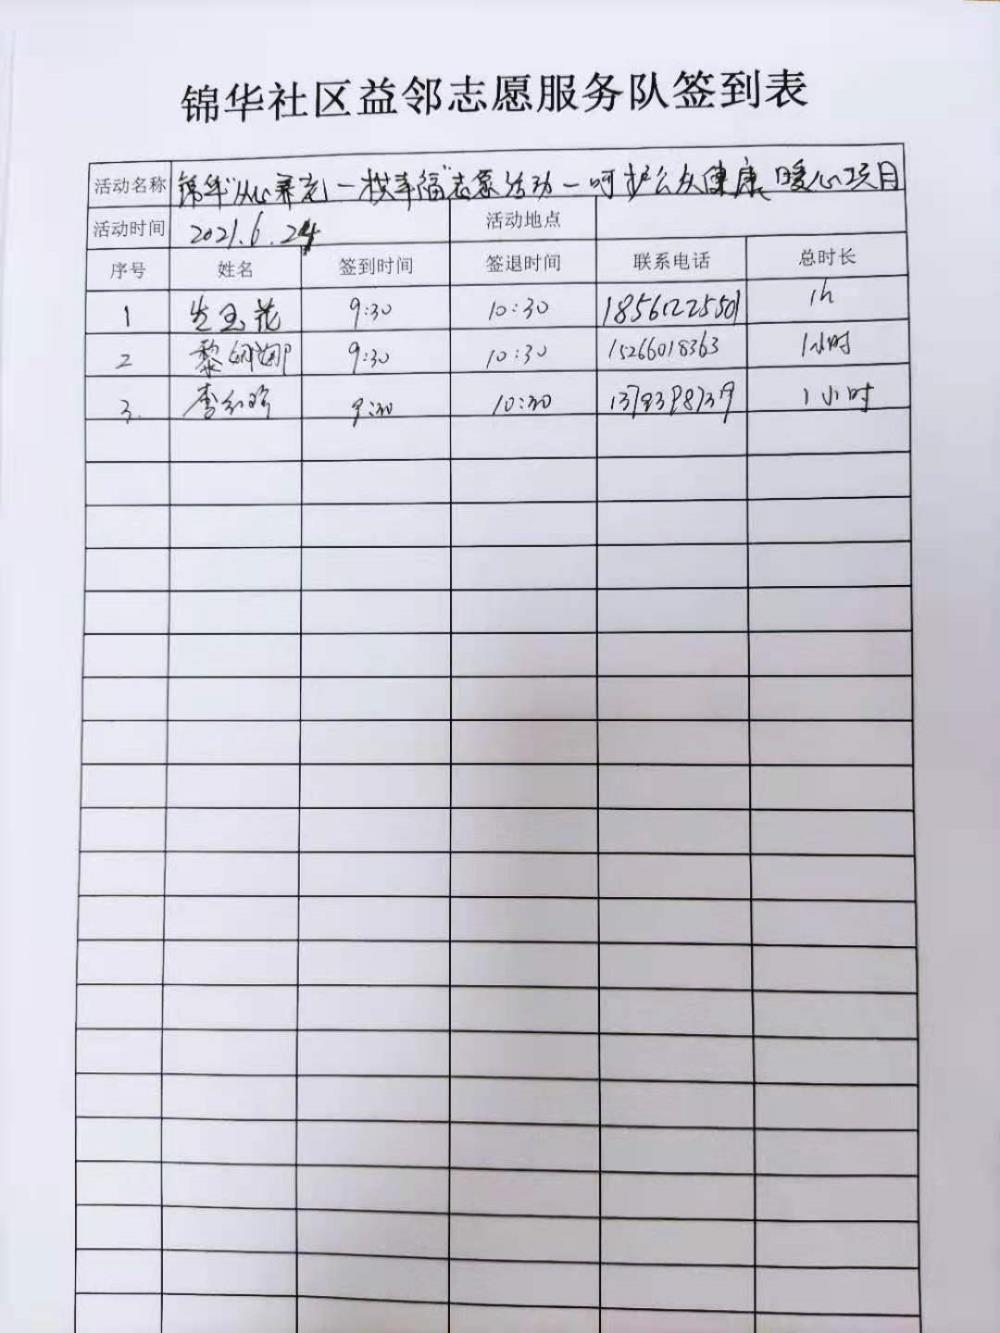 锦华社区益邻志愿服务队签到表
活动名称 锦华"从心养老一枝幸福"志愿活动－呵护公众健康 暖心项目
活动时间 2021.6.24 活动地点
序号 姓名 签到时间 签退时间 联系电话 总时长
1 生玉花 9:30 10:30 18561225501 1h
2 黎娜娜 9:30 10:30 15266018363 1小时
3. 李红 9:30 10:30 1小时